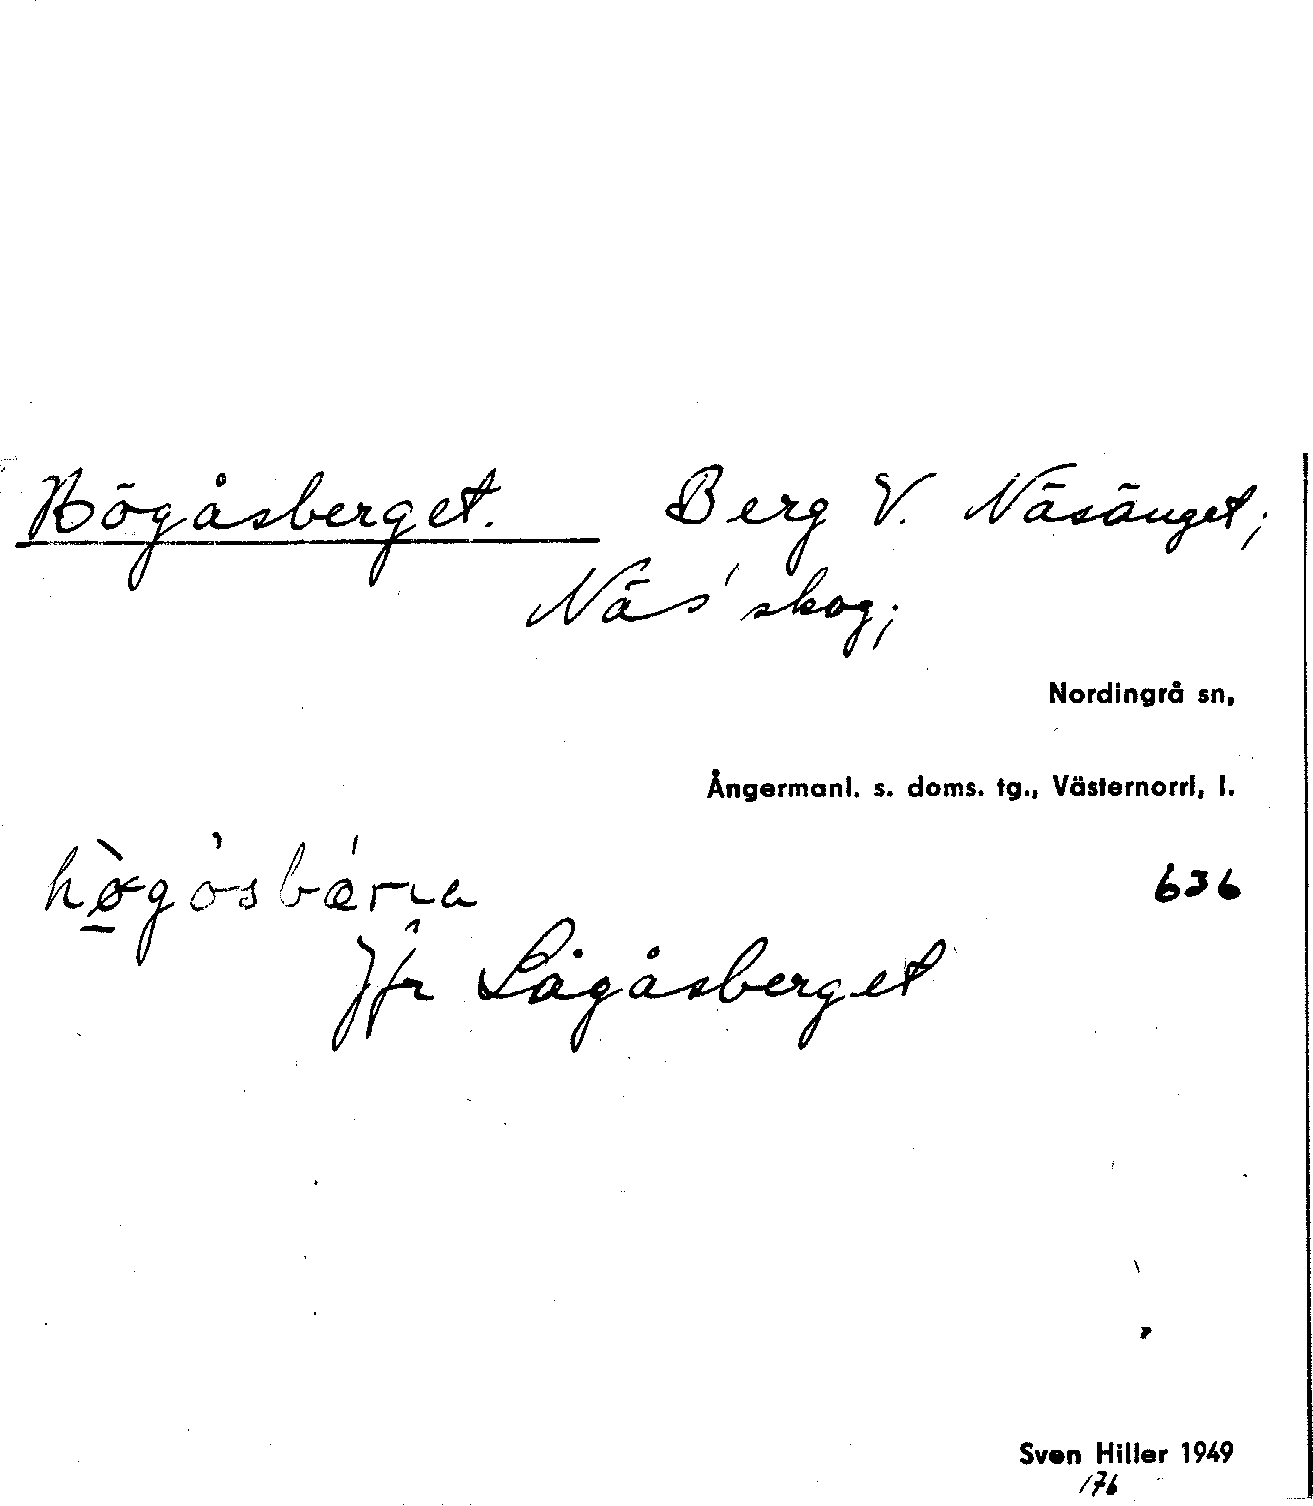 Högåsberget. Berg V. Näsänget;
Näs' skog;
Nordingrå sn,
Ångermanl. s. doms. tg., Västernorrl, l.
636
Jfr Lågåsberget
Sven Hiller 1949
176